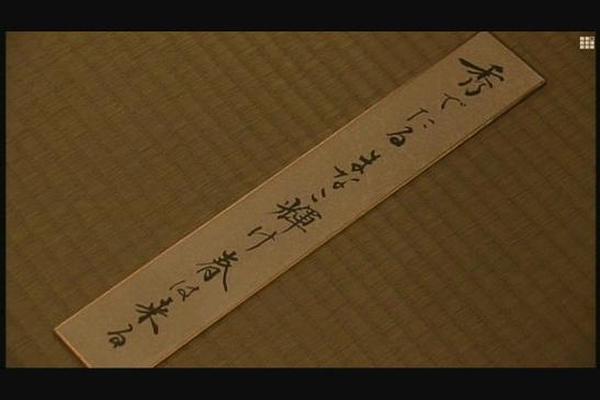 秀でたる まなこ輝け 春は来る